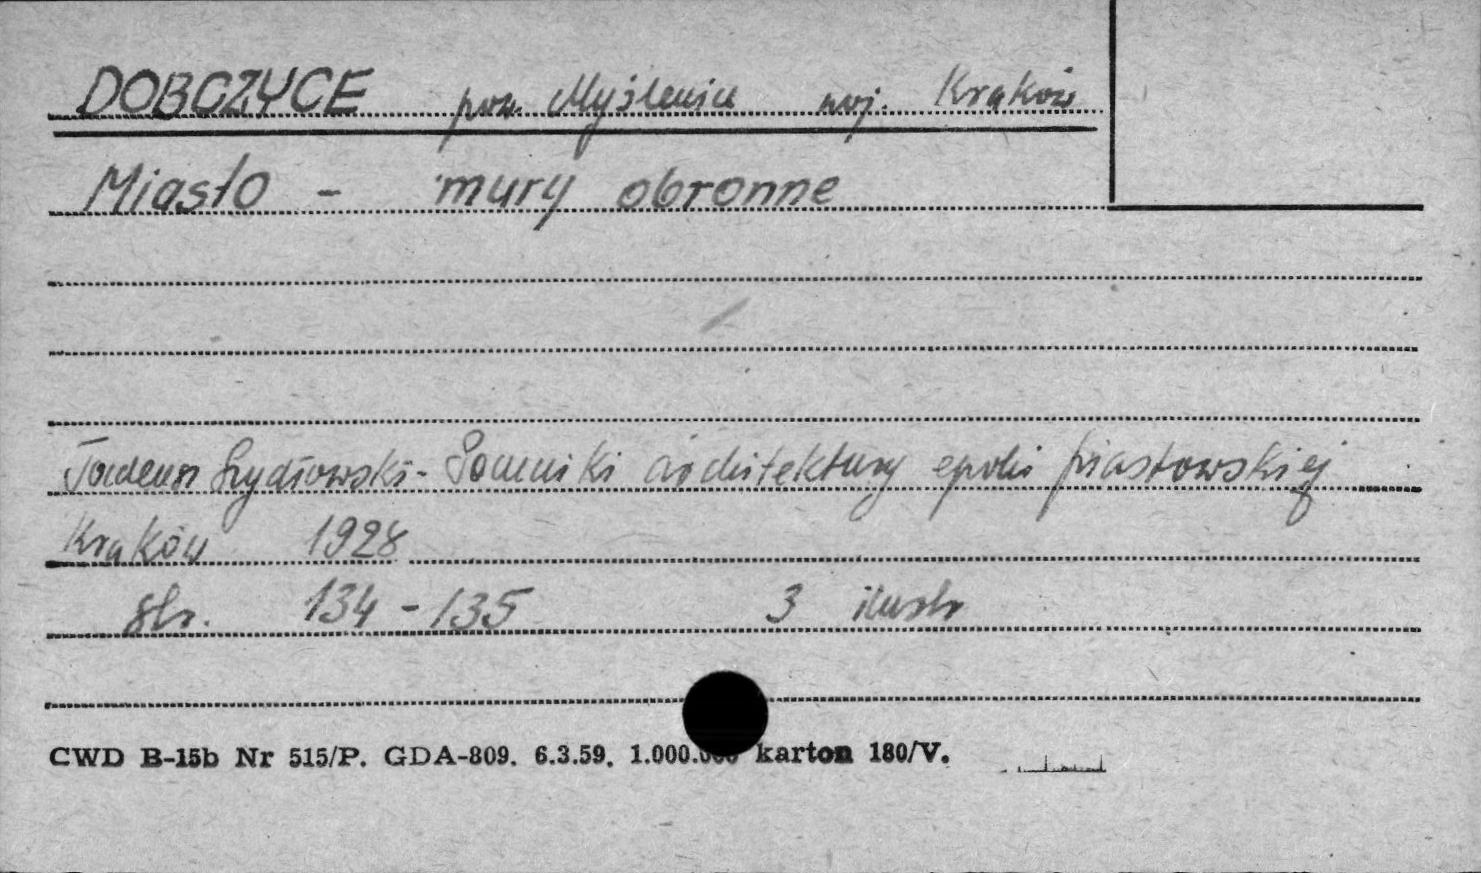 DOBCZYCE pow. Myślenice woj. Kraków
Miasto - mury obronne
Tadeusz Szydłowski - Pomniki architektury epoki piastowskiej
Kraków 1928
str. 134-135 3 ilustr
CWD B-15b Nr 515/P. GDA-809. 6.3.59. 1.000.000 karton 180/V.